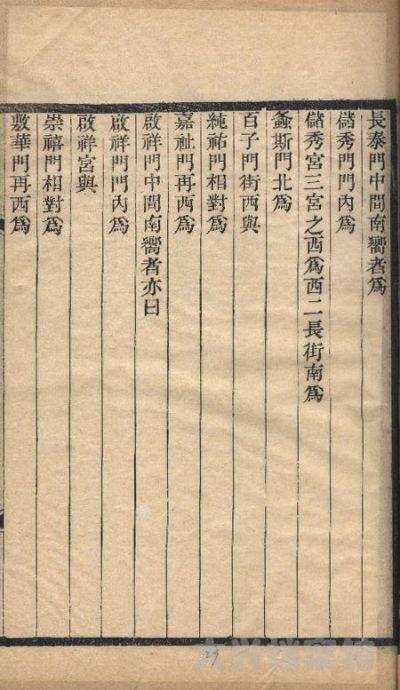 長泰門中間南嚮者為
儲秀門門內為
儲秀宮三宮之西為西二長街南為
螽斯門北為
百子門街西與
純祐門相對為
嘉祉門再西為
啟祥門中間南嚮者亦曰
啟祥門門內為
啟祥宮與
崇禧門相對為
敷華門再西為
29